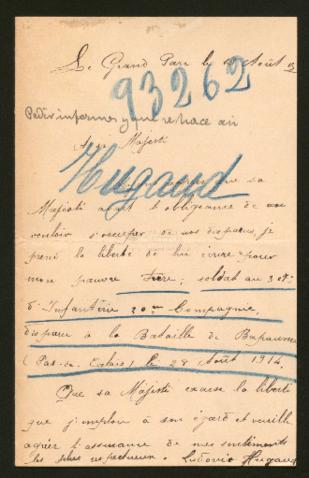 Le Grand Parc le Août
93262
Pedir informes y que se hace au
Sa Majesté
Hugaud
que sa
Majesté avait l'obligeance de vou
vouloir s'occuper de nos disparus, je
prend la liberté de lui écrire pour
mon pauvre frère, soldat au 3
d'Infanterie 20me Compagnie,
disparu à la Bataille de Bapaume
(Pas-de-Calais) le 28 Août 1914.
Que sa Majesté excuse la liberté
que j'emploie à son égard et veuille
agréer l'assurance de mes sentiments
les plus respectueux. Ludovic Hugaud